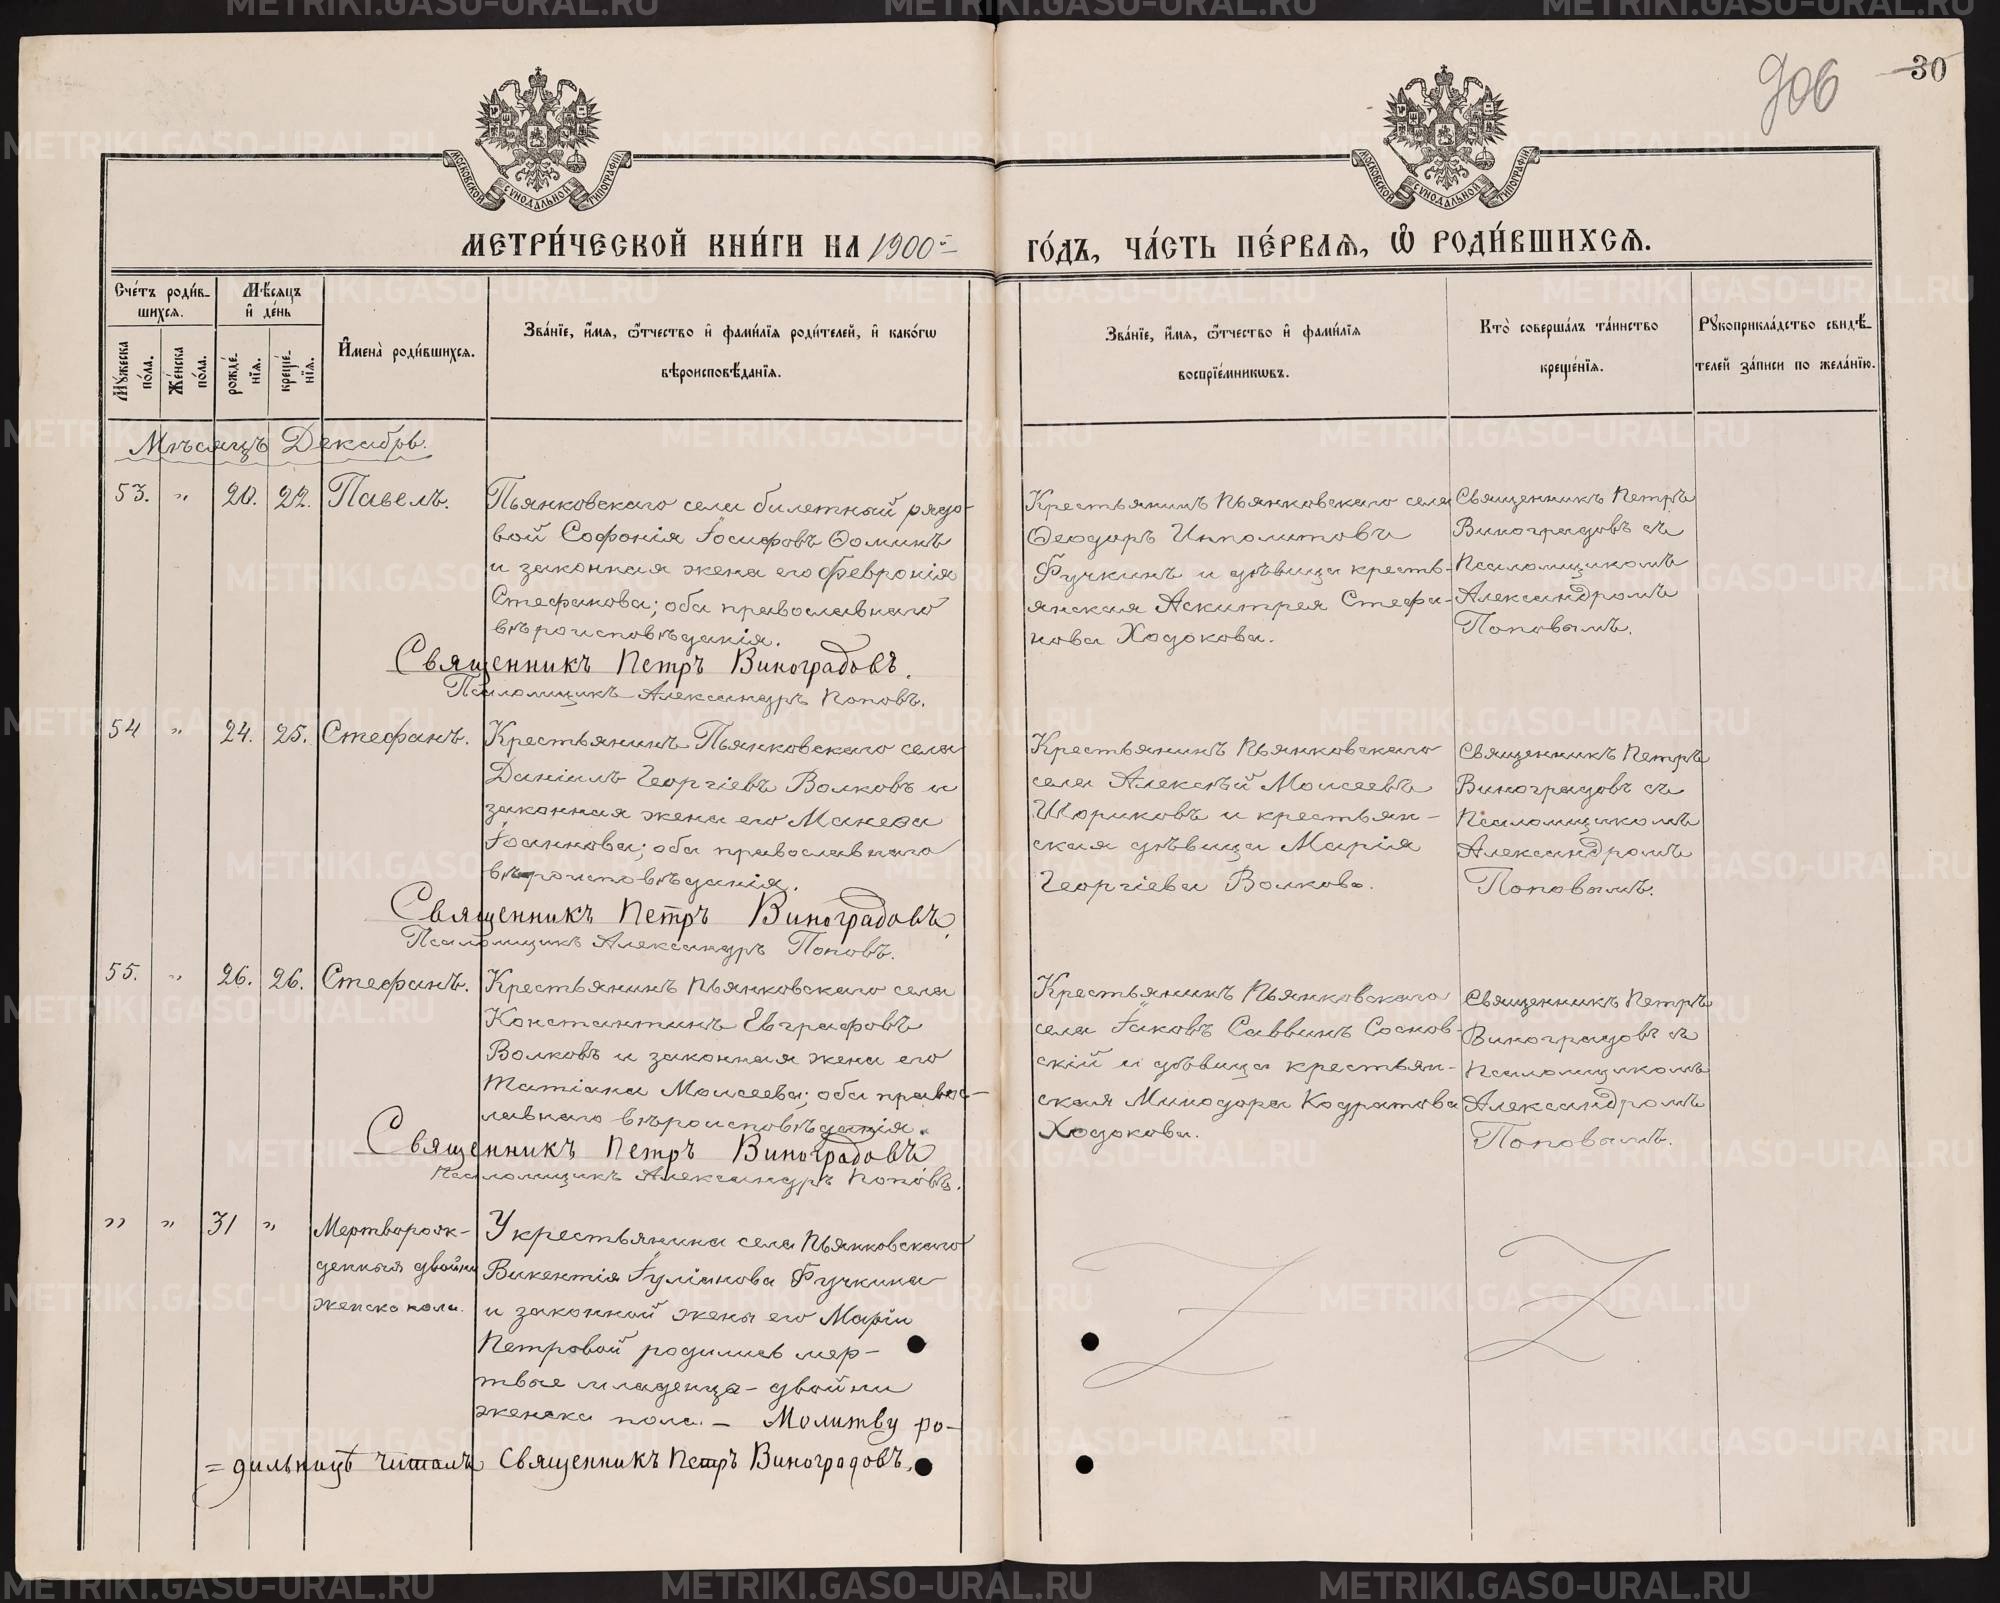 906
30
МОСКОВСКОЙ СѴНОДАЛЬНОЙ ТИПОГРАФІИ
МОСКОВСКОЙ СѴНОДАЛЬНОЙ ТИПОГРАФІИ
МЕТРИ́ЧЕСКОЙ КНИ́ГИ НА 1900й
ГО́ДЪ, ЧА́СТЬ ПЕ́РВАѦ, Ѽ РОДИ́ВШИХСѦ.
Сче́тъ роди́в-
шихсѧ.
Мѣ́сѧцъ
и҆ де́нь
Мꙋ́жеска
по́ла.
Же́нска
по́ла.
рожде́-
нїѧ.
креще́-
нїѧ.
И҆мена̀ роди́вшихсѧ.
Зва́нїе, и҆́мѧ, ѻ҆́тчество и҆ фами́лїѧ роди́телей, и҆ како́гѡ
вѣроисповѣ́данїѧ.
Зва́нїе, и҆́мѧ, ѻ҆́тчество и҆ фами́лїѧ
воспрїе́мникѡвъ.
Кто̀ соверша́лъ та́инство
креще́нїѧ.
Рꙋкоприкла́дство свидѣ́-
телей за́писи по жела́нїю.
Мѣсяцъ Декабрь.
53. „ 20. 22. Павелъ.
Пьянковскаго села билетный рядо-
вой Софонія Іосифовъ Ѳоминъ
и законная жена его Февронія
Стефанова; оба православнаго
вѣроисповѣданія.
Священникъ Петръ Виноградовъ.
Псаломщикъ Александръ Поповъ.
Крестьянинъ Пьянковскаго села
Ѳеодоръ Ипполитовъ
Фучкинъ и дѣвица кресть-
янская Аскитрея Стефа-
нова Ходокова.
Священникъ Петръ
Виноградовъ съ
Псаломщикомъ
Александромъ
Поповымъ.
54 „ 24. 25. Стефанъ.
Крестьянинъ Пьянковскаго села
Даніилъ Георгіевъ Волковъ и
законная жена его Манефа
Іоаннова; оба православнаго
вѣроисповѣданія.
Священникъ Петръ Виноградовъ.
Псаломщикъ Александръ Поповъ.
Крестьянинъ Пьянковскаго
села Алексѣй Моисеевъ
Шориковъ и крестьян-
ская дѣвица Марія
Георгіева Волкова.
Священникъ Петръ
Виноградовъ съ
Псаломщикомъ
Александромъ
Поповымъ.
55. „ 26. 26. Стефанъ.
Крестьянинъ Пьянковскаго села
Константинъ Евграфовъ
Волковъ и законная жена его
Татіана Моисеева; оба правос-
лавнаго вѣроисповѣданія.
Священникъ Петръ Виноградовъ
Псаломщикъ Александръ Поповъ.
Крестьянинъ Пьянковскаго
села Іаковъ Саввинъ Соснов-
скій и дѣвица крестьян-
ская Минодора Кодратова
Ходокова.
Священникъ Петръ
Виноградовъ съ
Псаломщикомъ
Александромъ
Поповымъ.
„ „ 31 „
Мертворож-
денныя двойни
женска пола.
У крестьянина села Пьянковскаго
Викентія Іуліанова Фучкина
и законной жены его Маріи
Петровой родились мер-
твые младенца - двойни
женска пола. - Молитву ро-
=дильницѣ читалъ Священникъ Петръ Виноградовъ.
METRIKI.GASO-URAL.RU